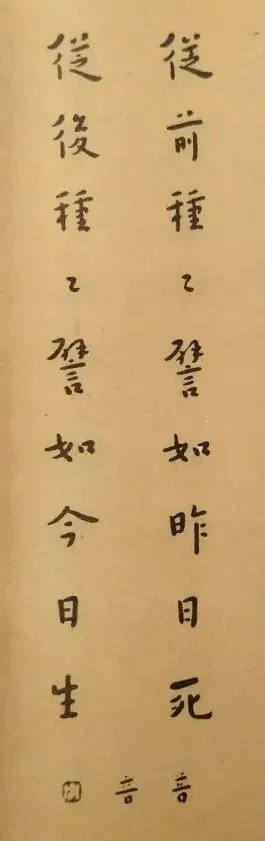 從前種〻譬如昨日死
從後種〻譬如今日生
普音